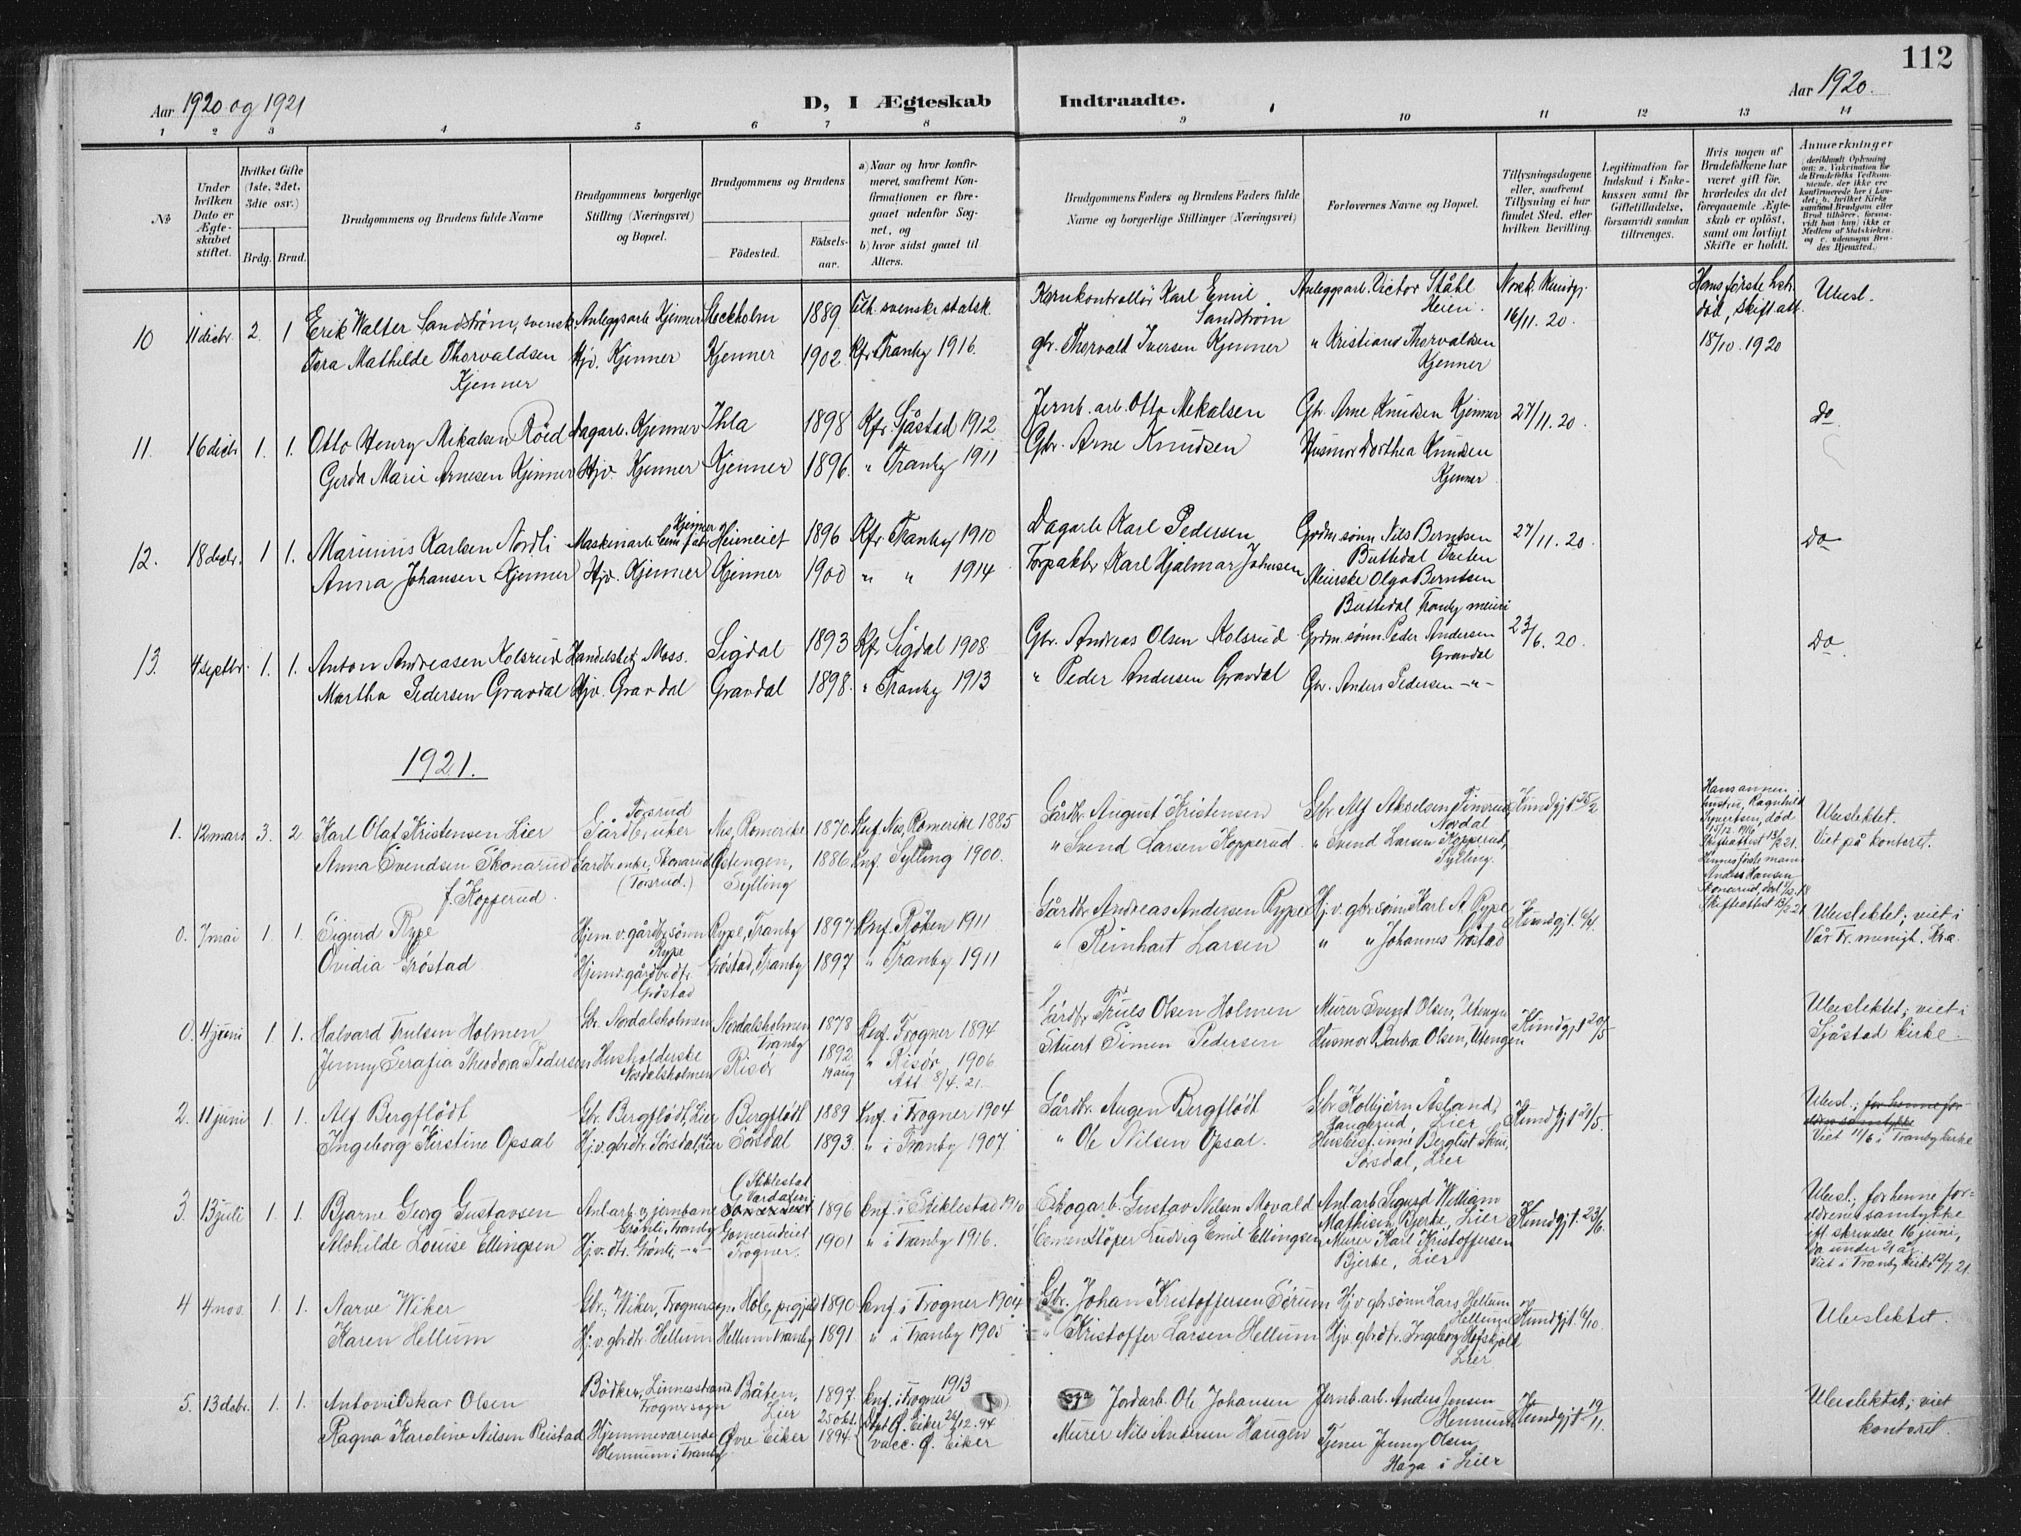 112
Aar 1920 og 1921
D, I Ægteskab
Indtraadte.
Aar 1920.
1 2 3 4 5 6 7 8 9 10 11 12 13 14
No
Under hvilken Dato er Ægteskabet stiftet.
Hvilket Gifte (1ste, 2det, 3die osv.)
Brdg. Brud.
Brudgommens og Brudens fulde Navne
Brudgommens borgerlige Stilling (Næringsvei) og Bopæl.
Brudgommens og Brudens
Födested.
Födselsaar.
a) Naar og hvor konfirmeret, saafremt Konfirmationen er foregaaet udenfor Sognet, og
b) hvor sidst gaaet til Alters.
Brudgommens Faders og Brudens Faders fulde Navne og borgerlige Stillinger (Næringsvei)
Forlovernes Navne og Bopæl.
Tillysningsdagene eller, saafremt Tillysning ei har fundet Sted, efter hvilken Bevilling.
Legitimation for Indskud i Enkekassen samt for Giftetilladelse, forsaavidt saadan tiltrænges.
Hvis nogen af Brudefolkene har været gift för, hvorledes da det foregaaende Ægteskab er oplöst, samt om lovligt Skifte er holdt.
Anmerkninger
10 11 decbr. 2. 1 Erik Walter Sandström, svensk Anleggsarb. Kjenner Stockholm 1889 Karnkontrollör Karl Emil Sandström Anleggsarb. Victor Ståhl Heien. Norsk Kundgj. 16/11. 20. Hans förste hstr. död, skifteatt. 18/10. 1920 Ubesl.
Tora Mathilde Thorvaldsen Kjenner Hjv. Kjenner Kjenner 1902. Kfr. Tranby 1916. gbr. Thorvald Iversen Kjenner " Kristiane Thorvaldsen Kjenner
11. 16 decbr 1. 1. Otto Henry Mekalsen Röed Dagarb. Kjenner Ihla 1898 Kfr. Sjåstad 1912 Jernb. arb. Otto Mekalsen Gbr. Arne Knudsen Kjenner 27/11. 20. do
Gerda Marie Arnesen Kjenner Hjv. Kjenner Kjenner 1896. " Tranby 1911 Gbr. Arne Knudsen Husmor Dorthea Knudsen Kjenner
12. 18 decbr. 1 1. Marinius Karlsen Nordli Maskinarb. Kjenner Heimeiet 1896 Kfr. Tranby 1910 Dagarb. Karl Pedersen Grdm.sönn Nils Berntsen Buttedal Tveten 27/11. 20. Do
Anna Johansen Kjenner Hjv. Kjenner Kjenner 1900 " " 1914 Forpakter Karl Hjalmar Johnsen Meierske Olga Berntsen Buttedal Tranby meieri
13. 4 septbr. 1. 1. Anton Andreasen Kolsrud Handelsbet. Moss. Sigdal 1893 Kfr Sigdal 1908 Gbr. Andreas Olsen Kolsrud Grdm.sönn Peder Andersen Gravdal 23/6. 20. Do
Martha Pedersen Gravdal Hjv. Gravdal Gravdal 1898. " Tranby 1913 " Peder Andersen Gravdal Gbr. Anders Pedersen -"-
1921.
1. 12 mars 3. 2. Karl Olaf Kristensen Lier Tosrud Gårdbruker Nes, Romerike 1870. Knf. Nes, Romerike 1885 Gårdbr. August Kristensen Gbr. Alf Akselsen Nordal Kundgj. 25/2 Hans annen hustru, Ragnhild Syvertsen, död 15/12. 1916 Skifteattest 13/2 21. Hennes förste mann Anders Hansen Skonarud, död 1/12. 18 Skifteattest 13/2 21. Ubeslektet. Viet på kontoret.
Anna Svendsen Skonarud f. Kopperud. Gårdbr.enke, Skonarud (Tosrud.) Östengen, Sylling 1886 Knf. Sylling 1900. " Svend Larsen Kopperud. " Svend Larsen Kopperud, Sylling.
0. 7 mai 1. 1. Sigurd Rype Hjem. v. gårdbr.sönn Rype Rype, Tranby 1897 Knf. Röken 1911 Gårdbr Andreas Andersen Rype Hj. v. gbr.sönn Karl A. Rype Kundgj. 6/4 Ubeslektet; viet i Vår Fr. menigh. Kra.
Ovidia Gröstad Hjemv. gårdbr.dtr. Gröstad Gröstad, Tranby 1897 " Tranby 1911 " Reinhart Larsen " " Johannes Gröstad
0. 4 juni 1. 1. Halvard Trulsen Holmen Gbr. Nordalsholmen Nordalsholmen Tranby 1878 Knf. Frogner 1894 Gårdbr Truls Olsen Holmen Murer Svent Olsen, Utengen Kundgj. 20/5 Ubeslektet; viet i Sjåstad Kirke
Jenny Serafia Theodora Pedersen Husholderske Nordalsholmen Risör 1892 19 aug " Risör 1906 Att. 8/4. 21. Stuert Simen Pedersen Husmor Barba Olsen, Utengen
2. 11 juni 1. 1. Alf Bergflödt Gbr. Bergflödt, Lier Bergflödt 1889 Knf. i Frogner 1904 Gårdbr. Augen Bergflödt Gbr Kolbjörn Åsland, Lier Kundgj. 21/5. Ubesl.; for henne foreldres samtykke Viet 11/6 i Tranby Kirke
Ingeborg Kirstine Opsal Hj. v. gbr.dtr. Sörsdal, Lier Sörsdal 1893. " i Tranby 1907. " Ole Nilsen Opsal. Sörsdal, Lier
3. 13 juli 1. 1. Bjarne Georg Gustavsen Anl.arb. v. jernbane Grönli, Tranby Stiklestad Værdalen 1896 Knf. i Stiklestad 1910 Skogarb. Gustav Nilsen Movald Anl.arb Sigurd William Mathisen, Bjerke, Lier Kundgj. 23/6. Ubesl.; for henne foreldrenes samtykke ift. skrivelse 16 juni, da under 21 år. Viet i Tranby Kirke 13/7 21.
Mohilde Louise Ellingsen Hj. v. dtr. Grönli -"- Gomerudeiet Frogner. 1901 " i Tranby 1916. Cementstöper Ludvig Emil Ellingsen Murer Karl Kristoffersen Bjerke, Lier
4 4 nov. 1. 1. Narve Wiker Gbr. Wiker, Frogner sogn. Höle, prgjld 1890 Knf. i Frogner 1904 Gbr. Johan Kristoffersen Sörum Hj. v. gbr.sönn Lars Hellum Hellum Kundgj. 6/10. Ubeslektet.
Karen Hellum Hj. v. gbr.dtr. Hellum Hellum Tranby 1891 " i Tranby 1905 " Kristoffer Larsen Hellum Hjv. gbr.dtr. Ingeborg Lier
5. 13 debr. 1. 1. Anton Oskar Olsen Bödker, Linnesstrand Frogner sogn Båten, Lier 1897. Knf. i Frogner 1913 Jordarb. Ole Johansen Jernb. arb. Anders Jensen Hennum Kundgj. 19/11. Ubeslektet; viet kontoret.
Ragna Karoline Nilsen Reistad Hjemmeværende Hennum i Tranby Övre Eiker 25 okt. 1894 Döpt Ö. Eiker 26/12. 94 vacc. Ö. Eiker Murer Nils Andersen Haugen Tjener Jenny Olsen, Haga i Lier